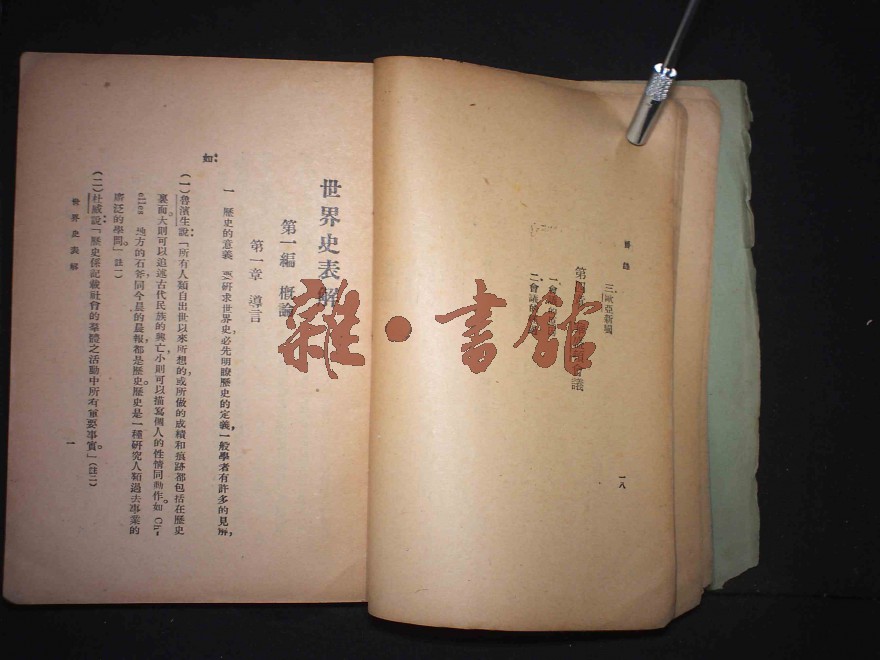 目錄
三、歐亞新國
會議
一八
世界史表解
第一編 概論
第一章 導言
一 歷史的意義 要研求世界史,必先明瞭歷史的定義,一般學者有許多的見解,
如:
(一)魯濱生說:「所有人類自出世以來所想的,或所做的成績和痕跡都包括在歷史
裏面。大則可以追述古代民族的興亡,小則可以描寫個人的性情同動作。如 Ch-
elles 地方的石斧,同今晨的晨報,都是歷史。歷史是一種研究人類過去事業的
廣泛的學問」(註一)
(二)杜威說:「歷史係記載社會的羣體之活動中所有重要事實。」(註二)
世界史表解
一
雜·書館